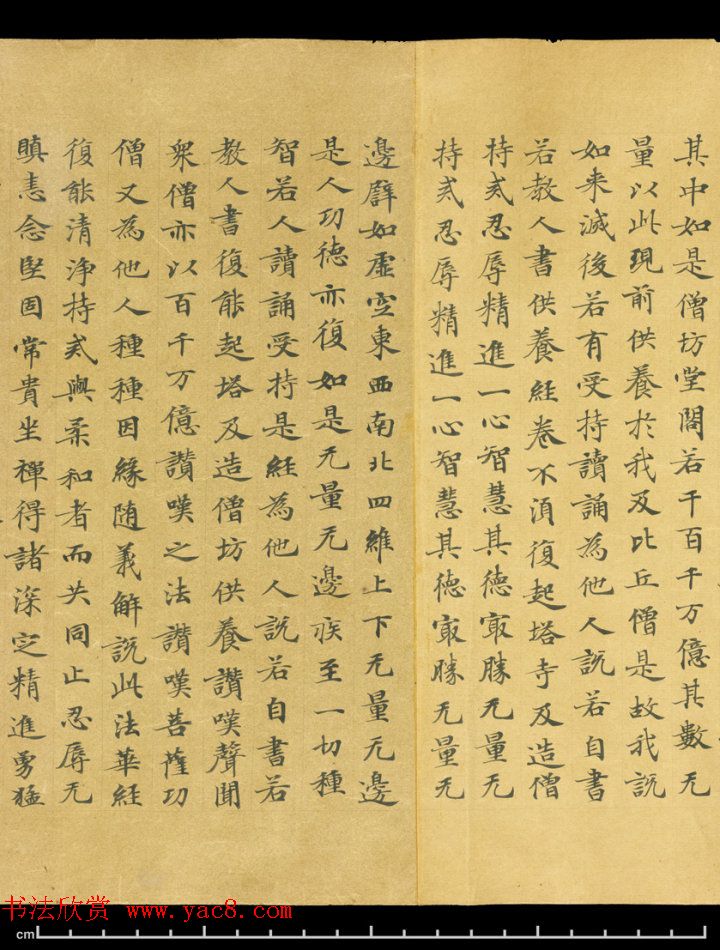 其中如是僧坊堂閣若千百千万億其數无
量以此現前供養於我及比丘僧是故我說
如来滅後若有受持讀誦為他人說若自書
若教人書供養經卷不湏復起塔寺及造僧
持戒忍辱精進一心智慧其德冣勝无量无
持戒忍辱精進一心智慧其德冣勝无量无
邊辟如虛空東西南北四維上下无量无邊
是人功德亦復如是无量无邊疾至一切種
智若人讀誦受持是經為他人說若自書若
教人書復能起塔及造僧坊供養讚嘆聲聞
衆僧亦以百千万億讚嘆之法讚嘆菩薩功
僧又為他人種種因緣随義解說此法華經
復能清淨持戒與柔和者而共同止忍辱无
瞋恚念堅固常貴坐禪得諸深定精進勇猛
书法欣赏 www.yac8.com
cm